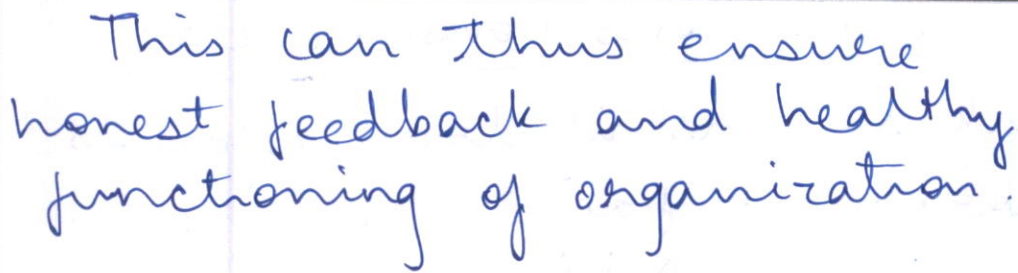 This can thus ensure
honest feedback and healthy
functioning of organization.